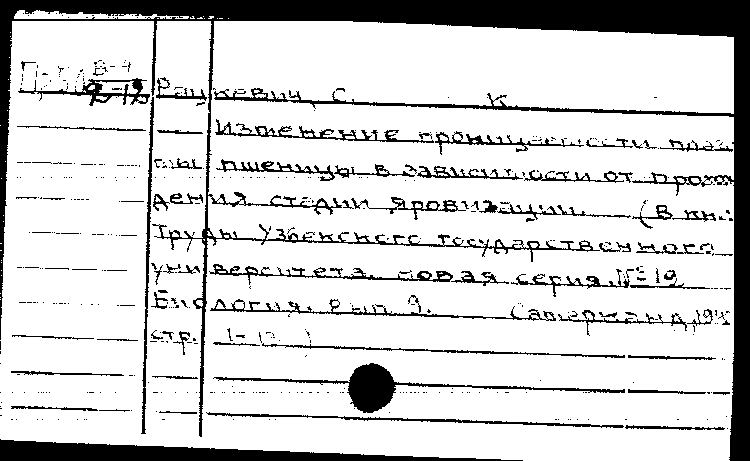 В-4
Рацкевич, С. К
Изменение проницаемости плаз
мы пшеницы в зависимости от прохож
дения стадии яровизации. (В кн.:
Труды Узбекского государственного
университета. новая серия. № 19
Биология. вып 9. Самарканд, 194
стр. 1-